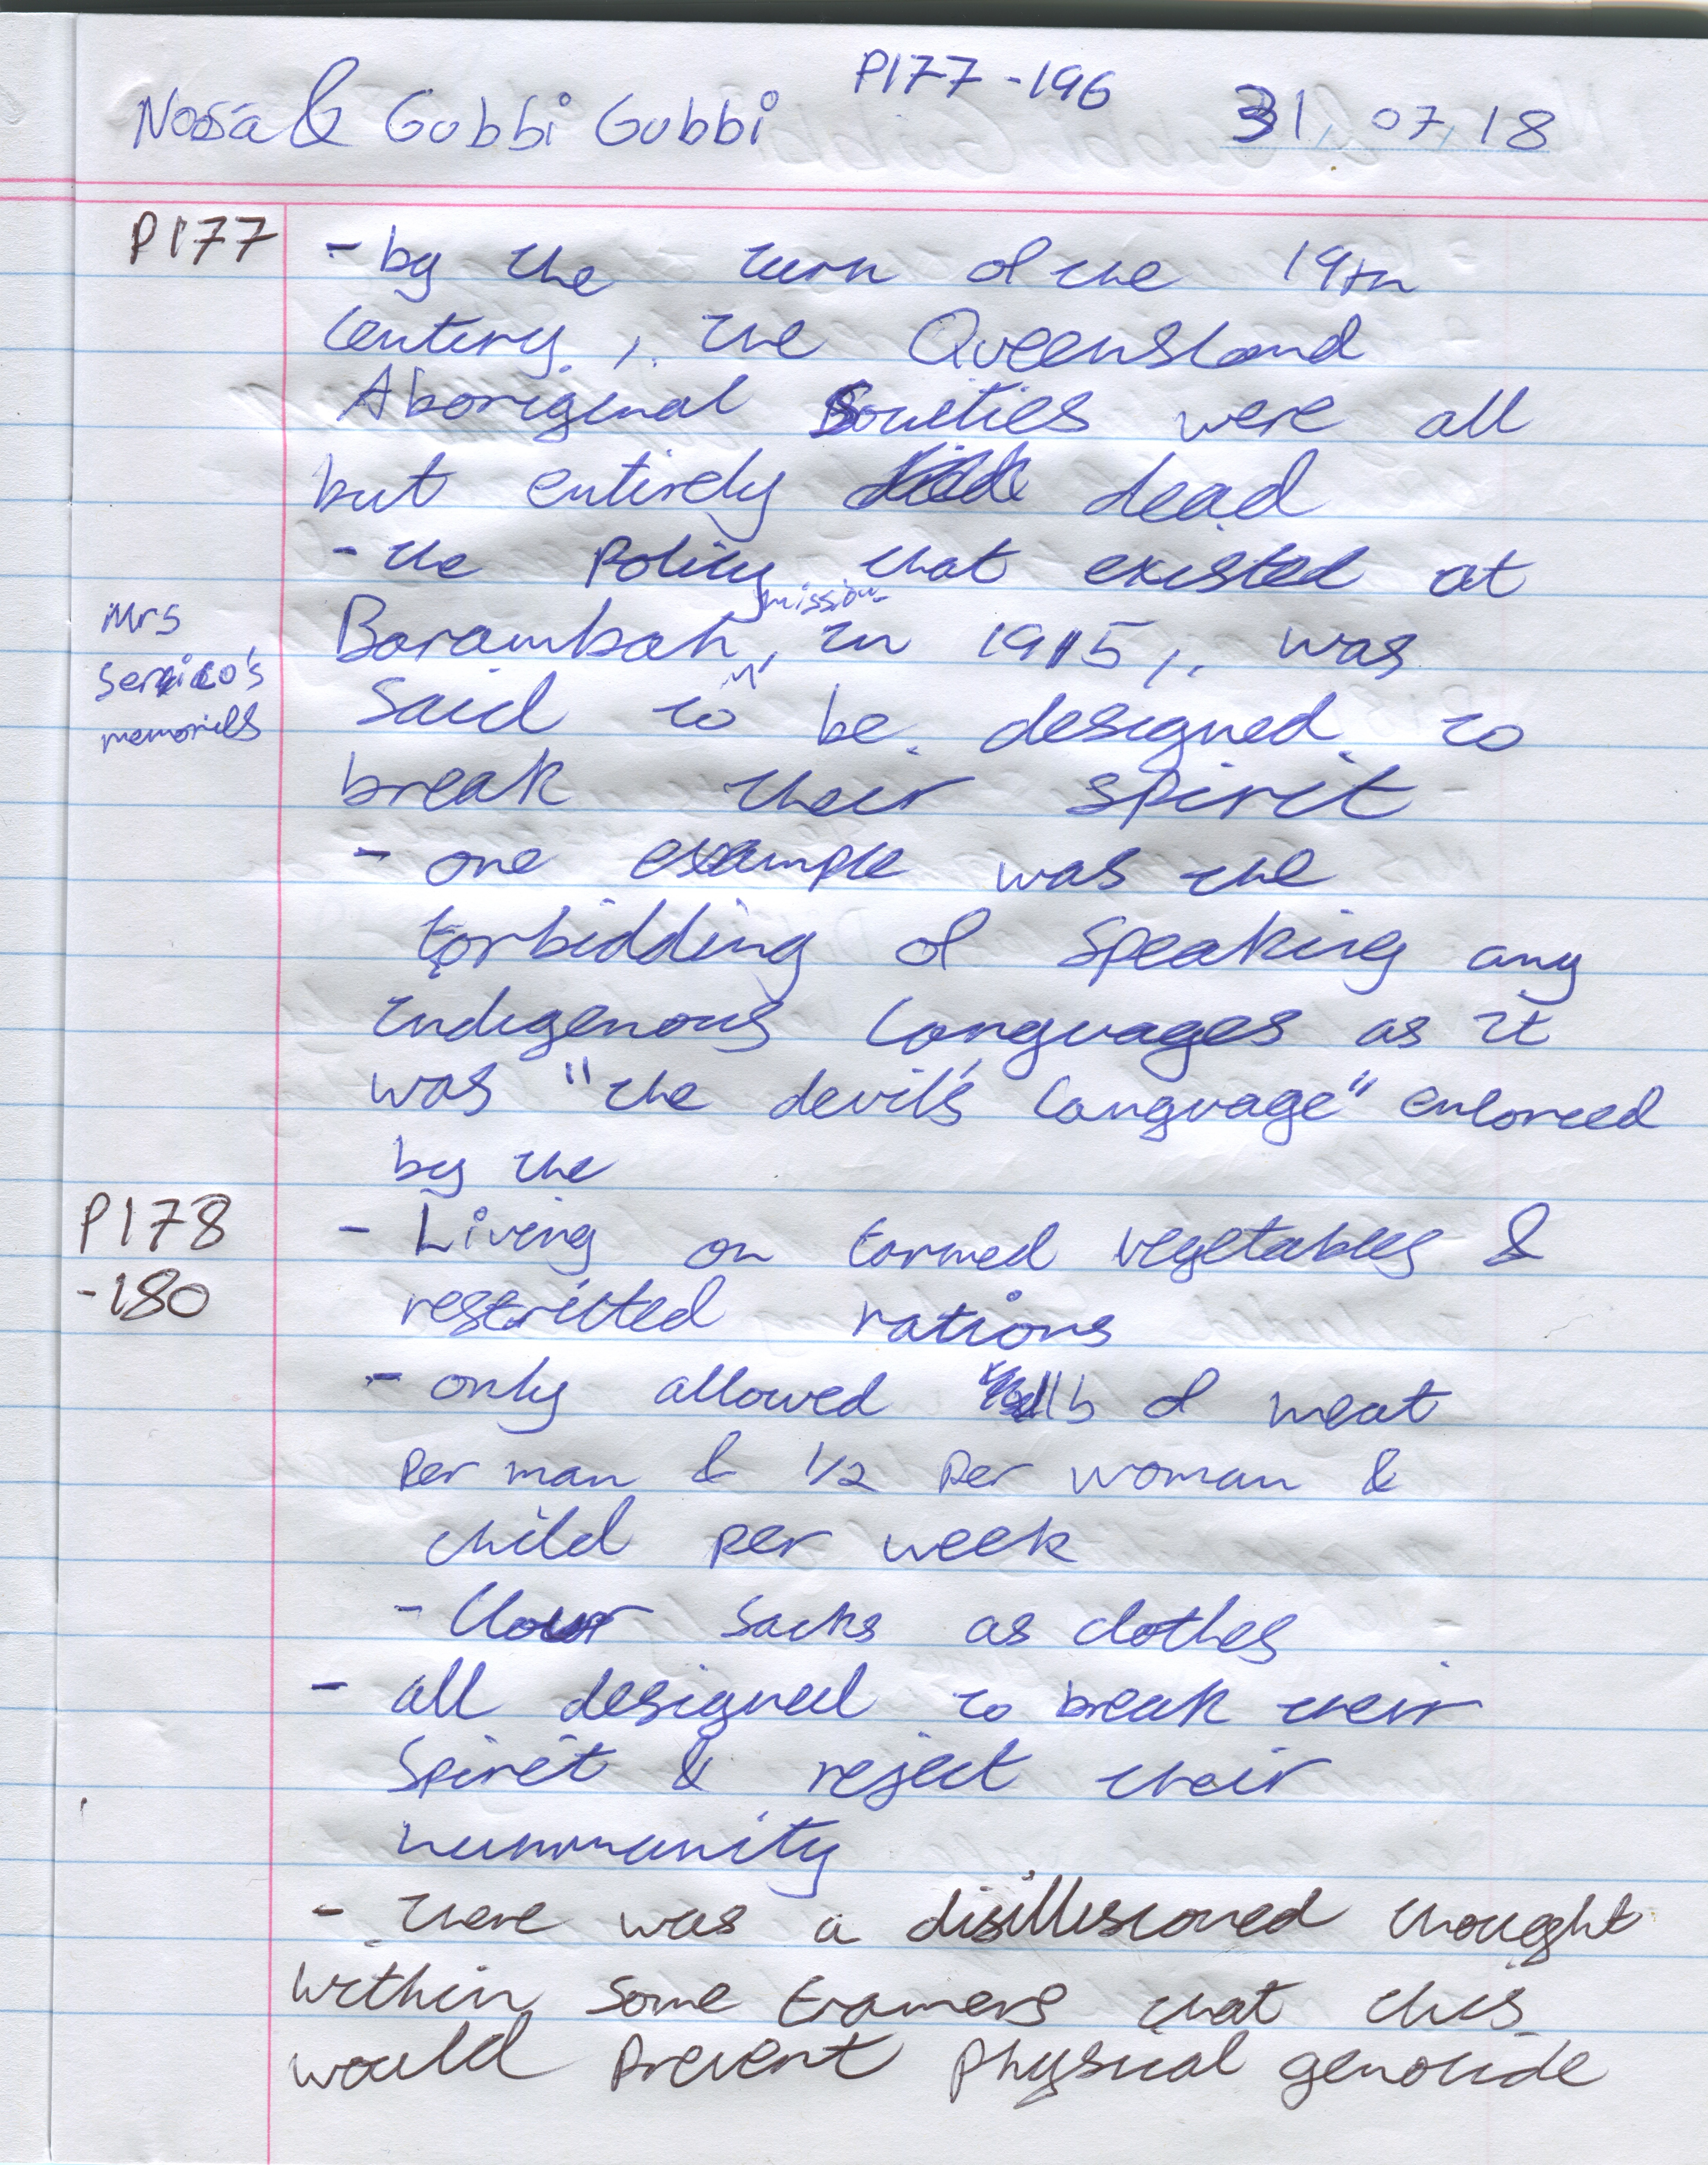 P177-196
Noosa & Gubbi Gubbi 31.07.18
P177 - by the turn of the 19th
century, the Queensland
Aboriginal Societies were all
but entirely dead
- the policy that existed at
mission
Mrs Barambah, in 1915, was
Serico's said to be designed to
memories break their spirit
- one example was the
forbidding of speaking any
indigenous languages as it
was "the devil's language" enforced
by the
P178 - Living on farmed vegetables &
-180 restricted rations
- only allowed 1lb of meat
per man & 1/2 per woman &
child per week
- flour sacks as clothes
- all designed to break their
spirit & reject their
hummunity
- there was a disillusioned thought
within some framers that this
would prevent physical genocide